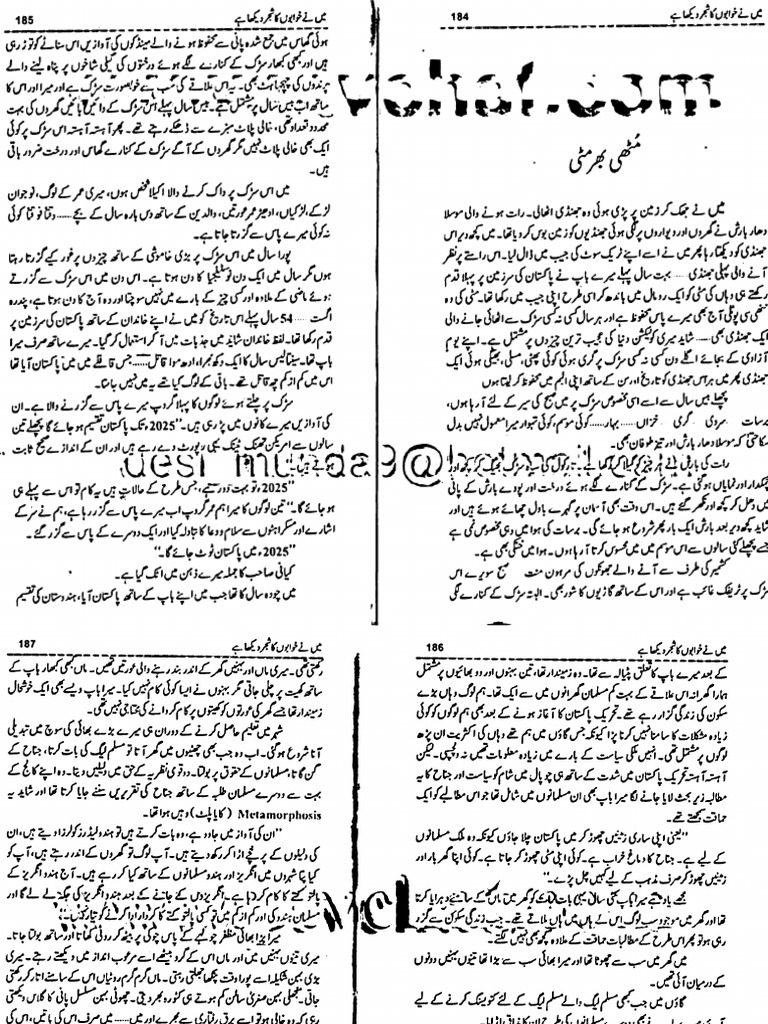 میں نے خوابوں کا شجر دیکھا ہے 184
مٹھی بھر مٹی
میں نے جھک کر زمین پر پڑی ہوئی وہ جھنڈی اٹھالی۔ رات ہونے والی موسلا
دھار بارش نے گھروں اور دیواروں پر لگی ہوئی جھنڈیوں کو زمین بوس کر دیا تھا۔ میں کچھ دیر اس
جھنڈی کو دیکھتا رہا پھر میں نے اسے اپنے ٹریک سوٹ کی جیب میں ڈال لیا۔ اس راستے پر نظر
آنے والی پہلی جھنڈی ..... بہت سال پہلے میرے باپ نے پاکستان کی سرزمین پر پہلا قدم
رکھتے ہی وہاں کی مٹی کو ایک رومال میں باندھ کر اسی طرح اپنی جیب میں رکھا تھا۔ مٹی کی وہ
ننھی سی پوٹلی آج بھی میرے پاس محفوظ ہے اور ہر سال کسی نہ کسی سڑک سے اٹھائی جانے والی
ایک جھنڈی بھی ..... شاید میری کولیکشن دنیا کی عجیب ترین چیزوں پر مشتمل ہے۔ اپنے یوم
آزادی کے بجائے اگلے دن کسی نہ کسی سڑک پر گری ہوئی کوئی پھٹی، مسلی، بھیگی ہوئی ایک
جھنڈی پھر میں ہر اس جھنڈی کو تاریخ اور سن کے ساتھ اپنی البم میں محفوظ کر لیتا ہوں
پچھلے میں سال سے اسے اسی مخصوص سڑک پر میں صبح کی سیر کے لئے آ رہا ہوں،
برسات سردی گرمی خزاں ..... بہار ..... کوئی موسم، کوئی تہوار میرا معمول نہیں بدل
سکا حتیٰ کہ موسلا دھار بارش اور تیز طوفان بھی۔
رات کی بارش نے
چمکدار اور نمایاں ہو گئی ہے۔ سڑک کے کنارے لگے ہوئے درخت اور پودے بارش کے پانی
میں دھل کر کچھ اور نکھر گئے ہیں۔ اس وقت بھی آسمان پر گہرے بادل چھائے ہوئے ہیں اور
شاید کچھ دیر بعد بارش ایک بار پھر شروع ہو جائے گی۔ برسات کی ہوا میں وہی مخصوص نمی ہے
جسے پچھلے کئی سالوں سے اس موسم میں میں محسوس کرتا آ رہا ہوں۔ ہوا میں خنکی بھی ہے۔
کشمیر کی طرف سے آنے والے جھونکوں کی مرہون منت صبح سویرے اس
سڑک پر ٹریفک غائب ہے اور اس کے ساتھ گاڑیوں کا شور بھی۔ البتہ سڑک کے کنارے لگی
میں نے خوابوں کا شجر دیکھا ہے 185
ہوئی گھاس میں جمع شدہ پانی سے محظوظ ہونے والے مینڈکوں کی آوازیں اس سناٹے کو توڑ رہی
ہیں اور کبھی کبھار سڑک کے کنارے لگے ہوئے درختوں کی گیلی شاخوں پر پناہ لینے والے
پرندوں کی چہچہاہٹ بھی۔ یہ اس علاقے کی سب سے خوبصورت سڑک ہے اور میرا اور اس کا
ساتھ اب بیس سال پر مشتمل ہے۔ بیس سال پہلے اس سڑک کے دائیں بائیں گھروں کی بہت
محدود تعداد تھی، خالی پلاٹ سبزے سے ڈھکے رہتے تھے۔ پھر آہستہ آہستہ اس سڑک پر کوئی
ایک بھی خالی پلاٹ نہیں مگر گھروں کے آگے سڑک کے کنارے گھاس اور درخت ضرور باقی
ہیں۔
میں اس سڑک پر واک کرنے والا اکیلا شخص ہوں، میری عمر کے لوگ، نوجوان
لڑکے، لڑکیاں، ادھیڑ عمر عورتیں، والدین کے ساتھ دس بارہ سال کے بچے ..... وقتاً فوقتاً کوئی
نہ کوئی میرے پاس سے گزرتا جاتا ہے۔
پورا سال میں اس سڑک پر بڑی خاموشی کے ساتھ چیزوں پر غور کیے گزرتا رہتا
ہوں مگر سال میں ایک دن نوسٹیلجیا کا دن ہوتا ہے۔ اس دن میں اس سڑک سے گزرتے
ہوئے ماضی کے علاوہ اور کسی چیز کے بارے میں نہیں سوچتا اور وہ آج کا دن ہوتا ہے، پندرہ
اگست ..... 54 سال پہلے اس تاریخ کو میں نے اپنے خاندان کے ساتھ پاکستان کی سرزمین پر
قدم رکھا تھا۔ لفظ خاندان شاید میں جذبات میں آ کر استعمال کر گیا۔ میرے ساتھ صرف میرا
باپ تھا۔ سینتالیس سال کا ایک دکھ بھرا، ادھ موا قاتل ..... جس قافلے میں میں پاکستان آیا تھا
اس میں کم از کم چھ قاتل تھے۔ باقی کے لوگ کیا تھے یہ میں نہیں جانتا۔
سڑک پر چلتے ہوئے لوگوں کا پہلا گروپ میرے پاس سے گزرنے والا ہے۔ ان
کی آوازیں میرے کانوں میں پڑ رہی ہیں۔ "2025ء تک پاکستان تقسیم ہو جائے گا پچھلے تین
سالوں سے امریکن تھنک ٹینک یہی رپورٹ دے رہے ہیں اور ان کے اندازے صحیح ثابت
"2025ء تو بہت دور ہے، جس طرح کے حالات ہیں یہ کام تو اس سے پہلے ہی
ہو جائے گا۔" تین لوگوں کا میرا ہم عمر گروپ اب میرے پاس سے گزر رہا ہے، ہم نے سر کے
اشارے اور مسکراہٹوں سے سلام و دعا کا تبادلہ کیا اور ایک دوسرے کے پاس سے گزر گئے۔
"2025ء میں پاکستان ٹوٹ جائے گا۔"
کیانی صاحب کا جملہ میرے ذہن میں اٹک گیا ہے۔
میں چودہ سال کا تھا جب میں اپنے باپ کے ساتھ پاکستان آیا، ہندوستان کی تقسیم
میں نے خوابوں کا شجر دیکھا ہے 186
کے بعد میرے باپ کا تعلق پٹیالہ سے تھا۔ وہ زمیندار تھا، تین بہنوں اور دو بھائیوں پر مشتمل
ہمارا گھرانہ اس علاقے کے بہت کم مسلمان گھرانوں میں سے ایک تھا۔ ہم لوگ وہاں بڑے
سکون کی زندگی گزار رہے تھے۔ تحریک پاکستان کا آغاز ہونے کے بعد بھی ہم لوگوں کو کوئی
زیادہ مشکلات کا سامنا نہیں کرنا پڑا کیونکہ جس گاؤں میں ہم تھے وہاں کی اکثریت ان پڑھ
لوگوں پر مشتمل تھی۔ انہیں ملکی سیاست کے بارے میں زیادہ معلومات تھیں نہ دلچسپی۔ لیکن
آہستہ آہستہ تحریک پاکستان میں شدت کے ساتھ ہی چوپال میں شام کو سیاست اور جناح کا یہ
مطالبہ زیر بحث لایا جانے لگا میرا باپ بھی ان مسلمانوں میں شامل تھا جو اس مطالبے کو ایک
حماقت کہتے تھے۔
"یعنی اپنی ساری زمینیں چھوڑ کر میں پاکستان چلا جاؤں کیونکہ وہ ملک مسلمانوں
کے لیے ہے۔ جناح کا دماغ خراب ہے۔ کوئی اپنی مٹی چھوڑ کر جاتا ہے۔ کوئی اپنا گھر بار اور
زمینیں چھوڑ کر صرف مذہب کے لیے کہیں چل پڑے۔"
مجھے یاد ہے میرا باپ کئی سال یہی بات لیک کو گھر میں ماں کے سامنے دہرایا کرتا
تھا اور گھر میں موجود سب لوگ اس کے ہاں میں ہاں ملاتے تھے۔ جب زندگی سکون سے گزر
رہی ہو تو پھر اس طرح کے مطالبات حماقت کے علاوہ کچھ بھی نہیں لگتے۔
میں گھر میں سب سے چھوٹا تھا اور میرا بھائی سب سے بڑا تھا تینوں بہنیں دونوں
کے درمیان آتی تھیں۔
گاؤں میں جب بھی مسلم لیگ والے مسلم لیگ کے لئے کنویسنگ کرنے کے لیے
میں نے خوابوں کا شجر دیکھا ہے 187
رکھتی تھی۔ میری ماں اور بہنیں گھر کے اندر بند رہنے والی عورتیں تھیں۔ ماں کبھی کبھار باپ کے
ساتھ کھیت پر چلی جاتی مگر بہنوں نے ایسا کوئی کام نہیں کیا۔ میرا باپ ویسے بھی ایک خوشحال
زمیندار تھا جسے گھر کی عورتوں کو کھیتوں پر کام کروانے کی محتاجی نہیں تھی۔
شہر میں تعلیم حاصل کرنے کے دوران ہی میرے بڑے بھائی کی سوچ میں تبدیلی
آنا شروع ہو گئی۔ اب وہ جب بھی چھٹیوں میں گھر آتا تو مسلم لیگ کی بات کرتا، جناح کے
گن گاتا، مسلمانوں کے حقوق پر بولتا۔ دو قومی نظریہ کے حق میں دلیلیں دیتا۔ وہ اپنے کالج کے
بہت سے دوسرے مسلمان طلبہ کے ساتھ جناح کی تقریریں سننے جایا کرتا تھا اور شاید یہ
Metamorphosis (کایا پلٹ) وہیں ہوا تھا۔
"ان کی آواز میں جادو ہے، وہ بات کرتے ہیں تو ہندو لیڈرز کو لرزا دیتے ہیں، ان
کی دلیلوں کے پرخچے اڑا کر رکھ دیتے ہیں۔ آپ لوگ تو گھروں کے اندر رہتے ہیں، آپ کو
کیا پتا شہروں میں انگریز اور ہندو مسلمانوں کے ساتھ کیا کر رہے ہیں۔ آج ہندو انگریز کے
پالتو کتے کا کام کر رہا ہے۔ انگریزوں کے جانے کے بعد ہندو انگریز کی جگہ لے لے گا اور
مسلمان ہندو کی اور کم از کم میں تو کسی پالتو کتے کا کردار ادا کرنے کو تیار نہیں۔"
میرا بڑا بھائی مظفر چولہے کے پاس چوکی پر بیٹھ کر روٹی کھاتا اور ساتھ بولتا جاتا۔
میری تینوں بہنیں اور ماں اس کے گرد بیٹھے اسے مرعوب انداز میں دیکھتے رہتے۔ میری
بڑی بہن شکیلہ اسے پورا وقت پنکھا جھلتی رہتی۔ ماں گرم گرم روٹیاں اس کے سامنے اتار کر رکھتی
جاتی۔ منجھلی بہن صغریٰ سالن کم ہوتے ہی کٹورہ بھر دیتی۔ چھوٹی بہن مسلسل پانی کا گلاس دیکھتی